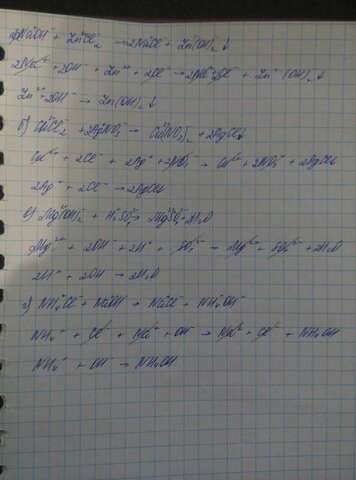 2NaOH + ZnCl₂ → 2NaCl + Zn(OH)₂↓
2Na⁺ + 2OH⁻ + Zn²⁺ + 2Cl⁻ → 2Na⁺ + 2Cl⁻ + Zn(OH)₂↓
Zn²⁺ + 2OH⁻ → Zn(OH)₂↓
б) CuCl₂ + 2AgNO₃ → Cu(NO₃)₂ + 2AgCl↓
Cu²⁺ + 2Cl⁻ + 2Ag⁺ + 2NO₃⁻ → Cu²⁺ + 2NO₃⁻ + 2AgCl↓
2Ag⁺ + 2Cl⁻ → 2AgCl↓
в) Mg(OH)₂ + H₂SO₄ → MgSO₄ + 2H₂O
Mg²⁺ + 2OH⁻ + 2H⁺ + SO₄²⁻ → Mg²⁺ + SO₄²⁻ + 2H₂O
2H⁺ + 2OH → 2H₂O
г) NH₄Cl + NaOH → NaCl + NH₄OH
NH₄⁺ + Cl⁻ + Na⁺ + OH⁻ → Na⁺ + Cl⁻ + NH₄OH
NH₄⁺ + OH⁻ → NH₄OH